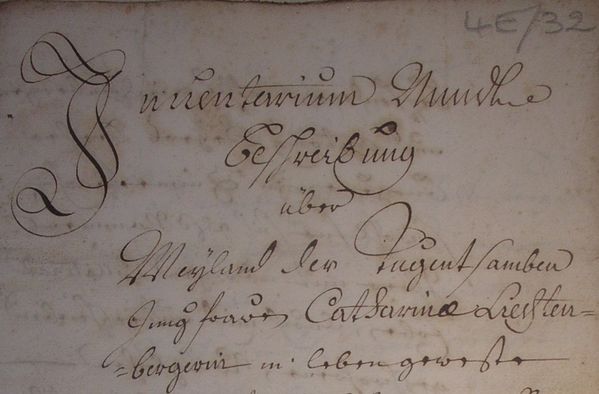 4E/32
Inventarium Unndt
Beschreibung
über
Weyland der Tugentsamben
Jungfrauen Catharinæ Liechten=
=bergerin in leben geweste